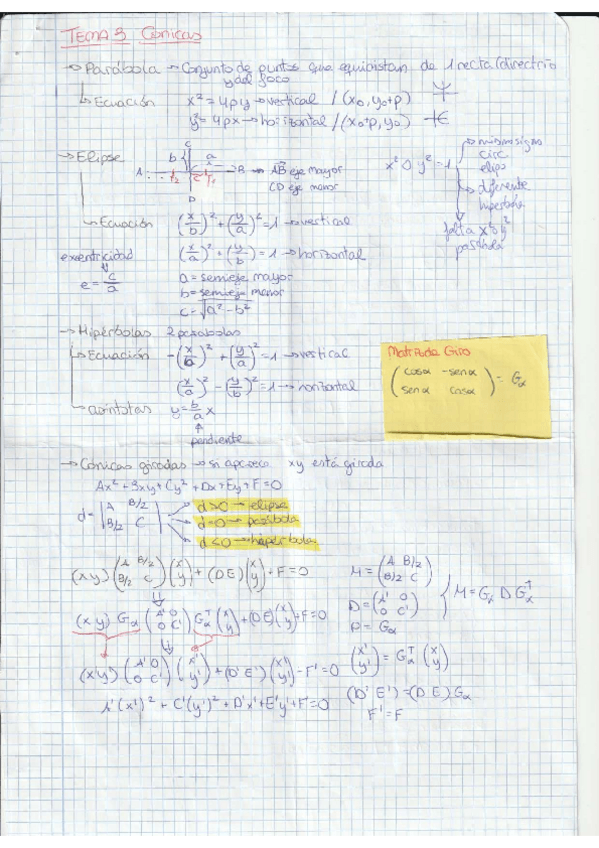 TEMA 3 Cónicas
→ Parábola → Conjunto de puntos que equidistan de 1 recta (directriz
y del foco
↳ Ecuación x² = 4py → vertical / (x₀, y₀+p)
y² = 4px → horizontal / (x₀+p, y₀)
→ Elipse A B C D b a c → AB eje mayor
CD eje menor
x² O y² = 1
→ mismo signo
circ
elips
→ diferente
hipérbola
falta x² o y²
parábola
→ Ecuación (x/b)² + (y/a)² = 1 → vertical
(x/a)² + (y/b) = 1 → horizontal
exentricidad
e = c/a
a = semieje mayor
b = semieje menor
c = √(a² - b²)
→ Hipérbolas 2 parabolas
→ Ecuación -(x/b)² + (y/a)² = 1 → vertical
(x/a)² - (y/b)² = 1 → horizontal
→ asíntotas y = b/a x
↑
pendiente
Matriz de Giro
(cosα -senα
senα cosα) = Gα
→ Cónicas giradas → si aparece xy está girada
Ax² + Bxy + Cy² + Dx + Ey + F = 0
d = |A B/2
B/2 C|
→ d>0 → elipse
→ d=0 → parábola
→ d<0 → hipérbola
(x y) (A B/2 B/2 C) (x y) + (D E) (x y) + F = 0
(x y) Gα (A' 0 0 C') Gαᵀ (x y) + (D E) (x y) + F = 0
(x' y') (A' 0 0 C') (x' y') + (D' E') (x' y') - F' = 0
A'(x')² + C'(y')² + D'x' + E'y' + F' = 0
M = (A B/2 B/2 C)
D = (A' 0 0 C')
P = Gα
M = Gα D Gαᵀ
(x' y') = Gαᵀ (x y)
(D' E') = (D E) Gα
F' = F